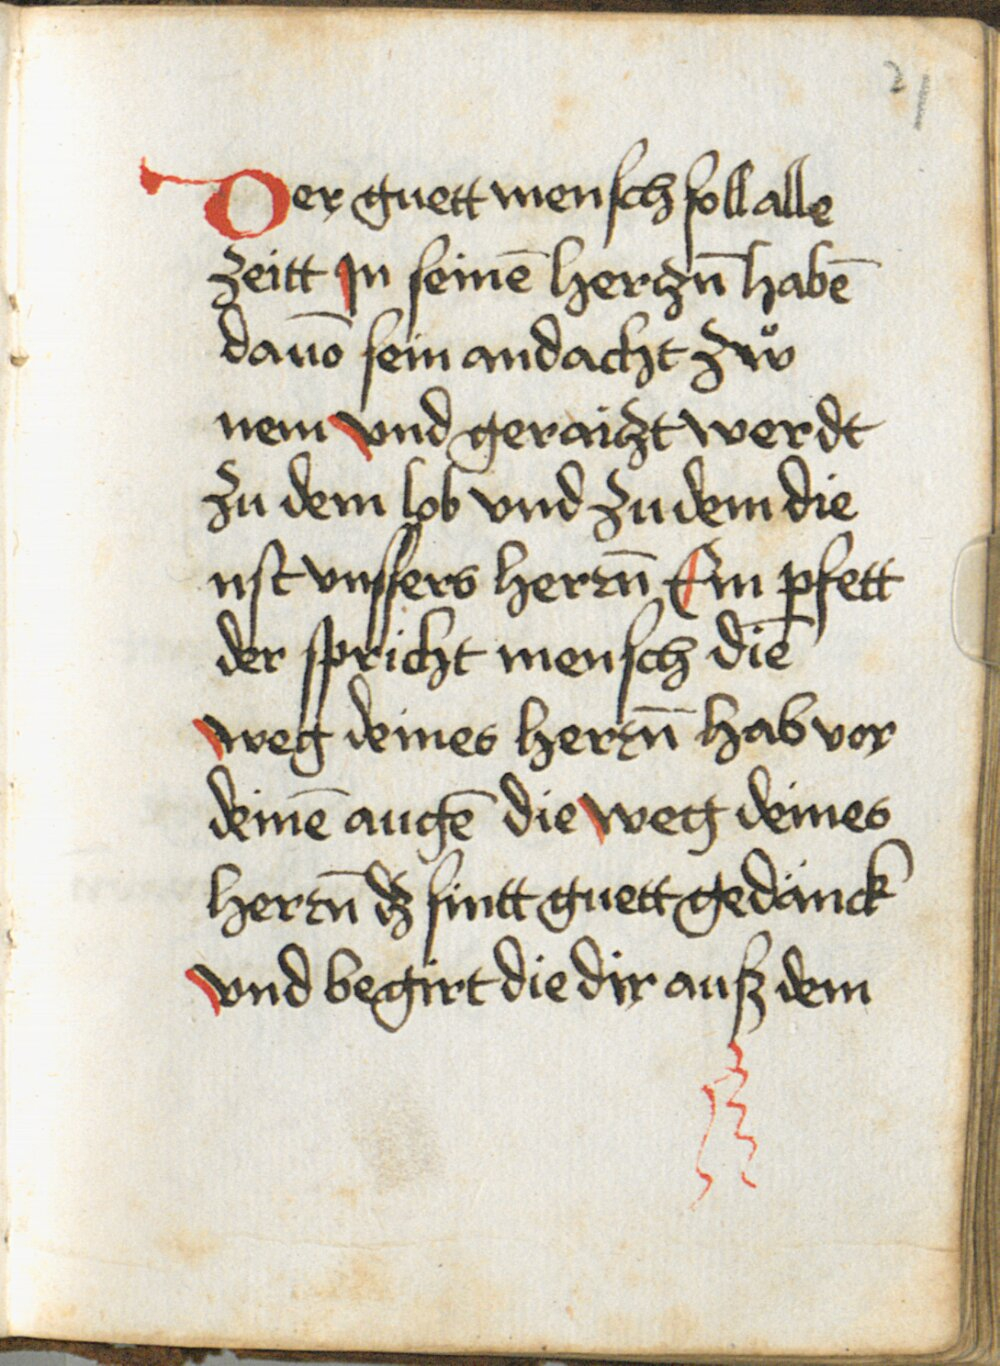 21
Der guett mensch soll alle
zeitt In seinē herczn̄ habē
dauō sein andacht zuͦ
nem vnd geraiczt werdt
zu dem lob vnd zu dem die
nst vnssers herrn̄ Ein pfett
der spricht mensch die
weg deines herrn̄ hab vor
deinē augē die weg deines
herrn̄ dz sintt guett gedänck
vnd begirt die dir ausz dem